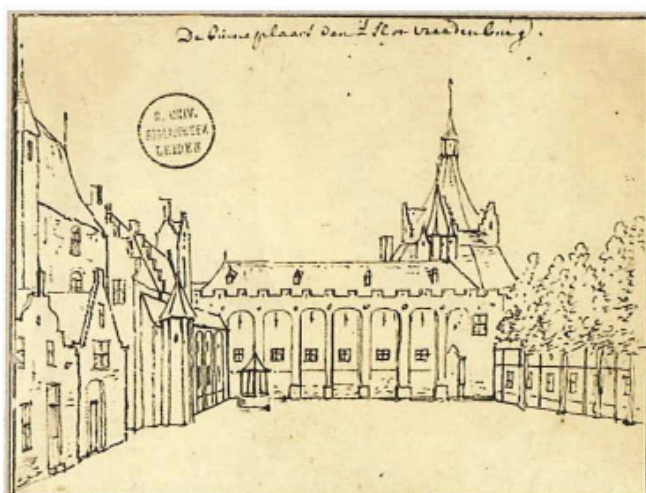 De binne plaats van 't Slot vreedenburg.
R. UNIV.
BIBLIOTHEEK
LEIDEN